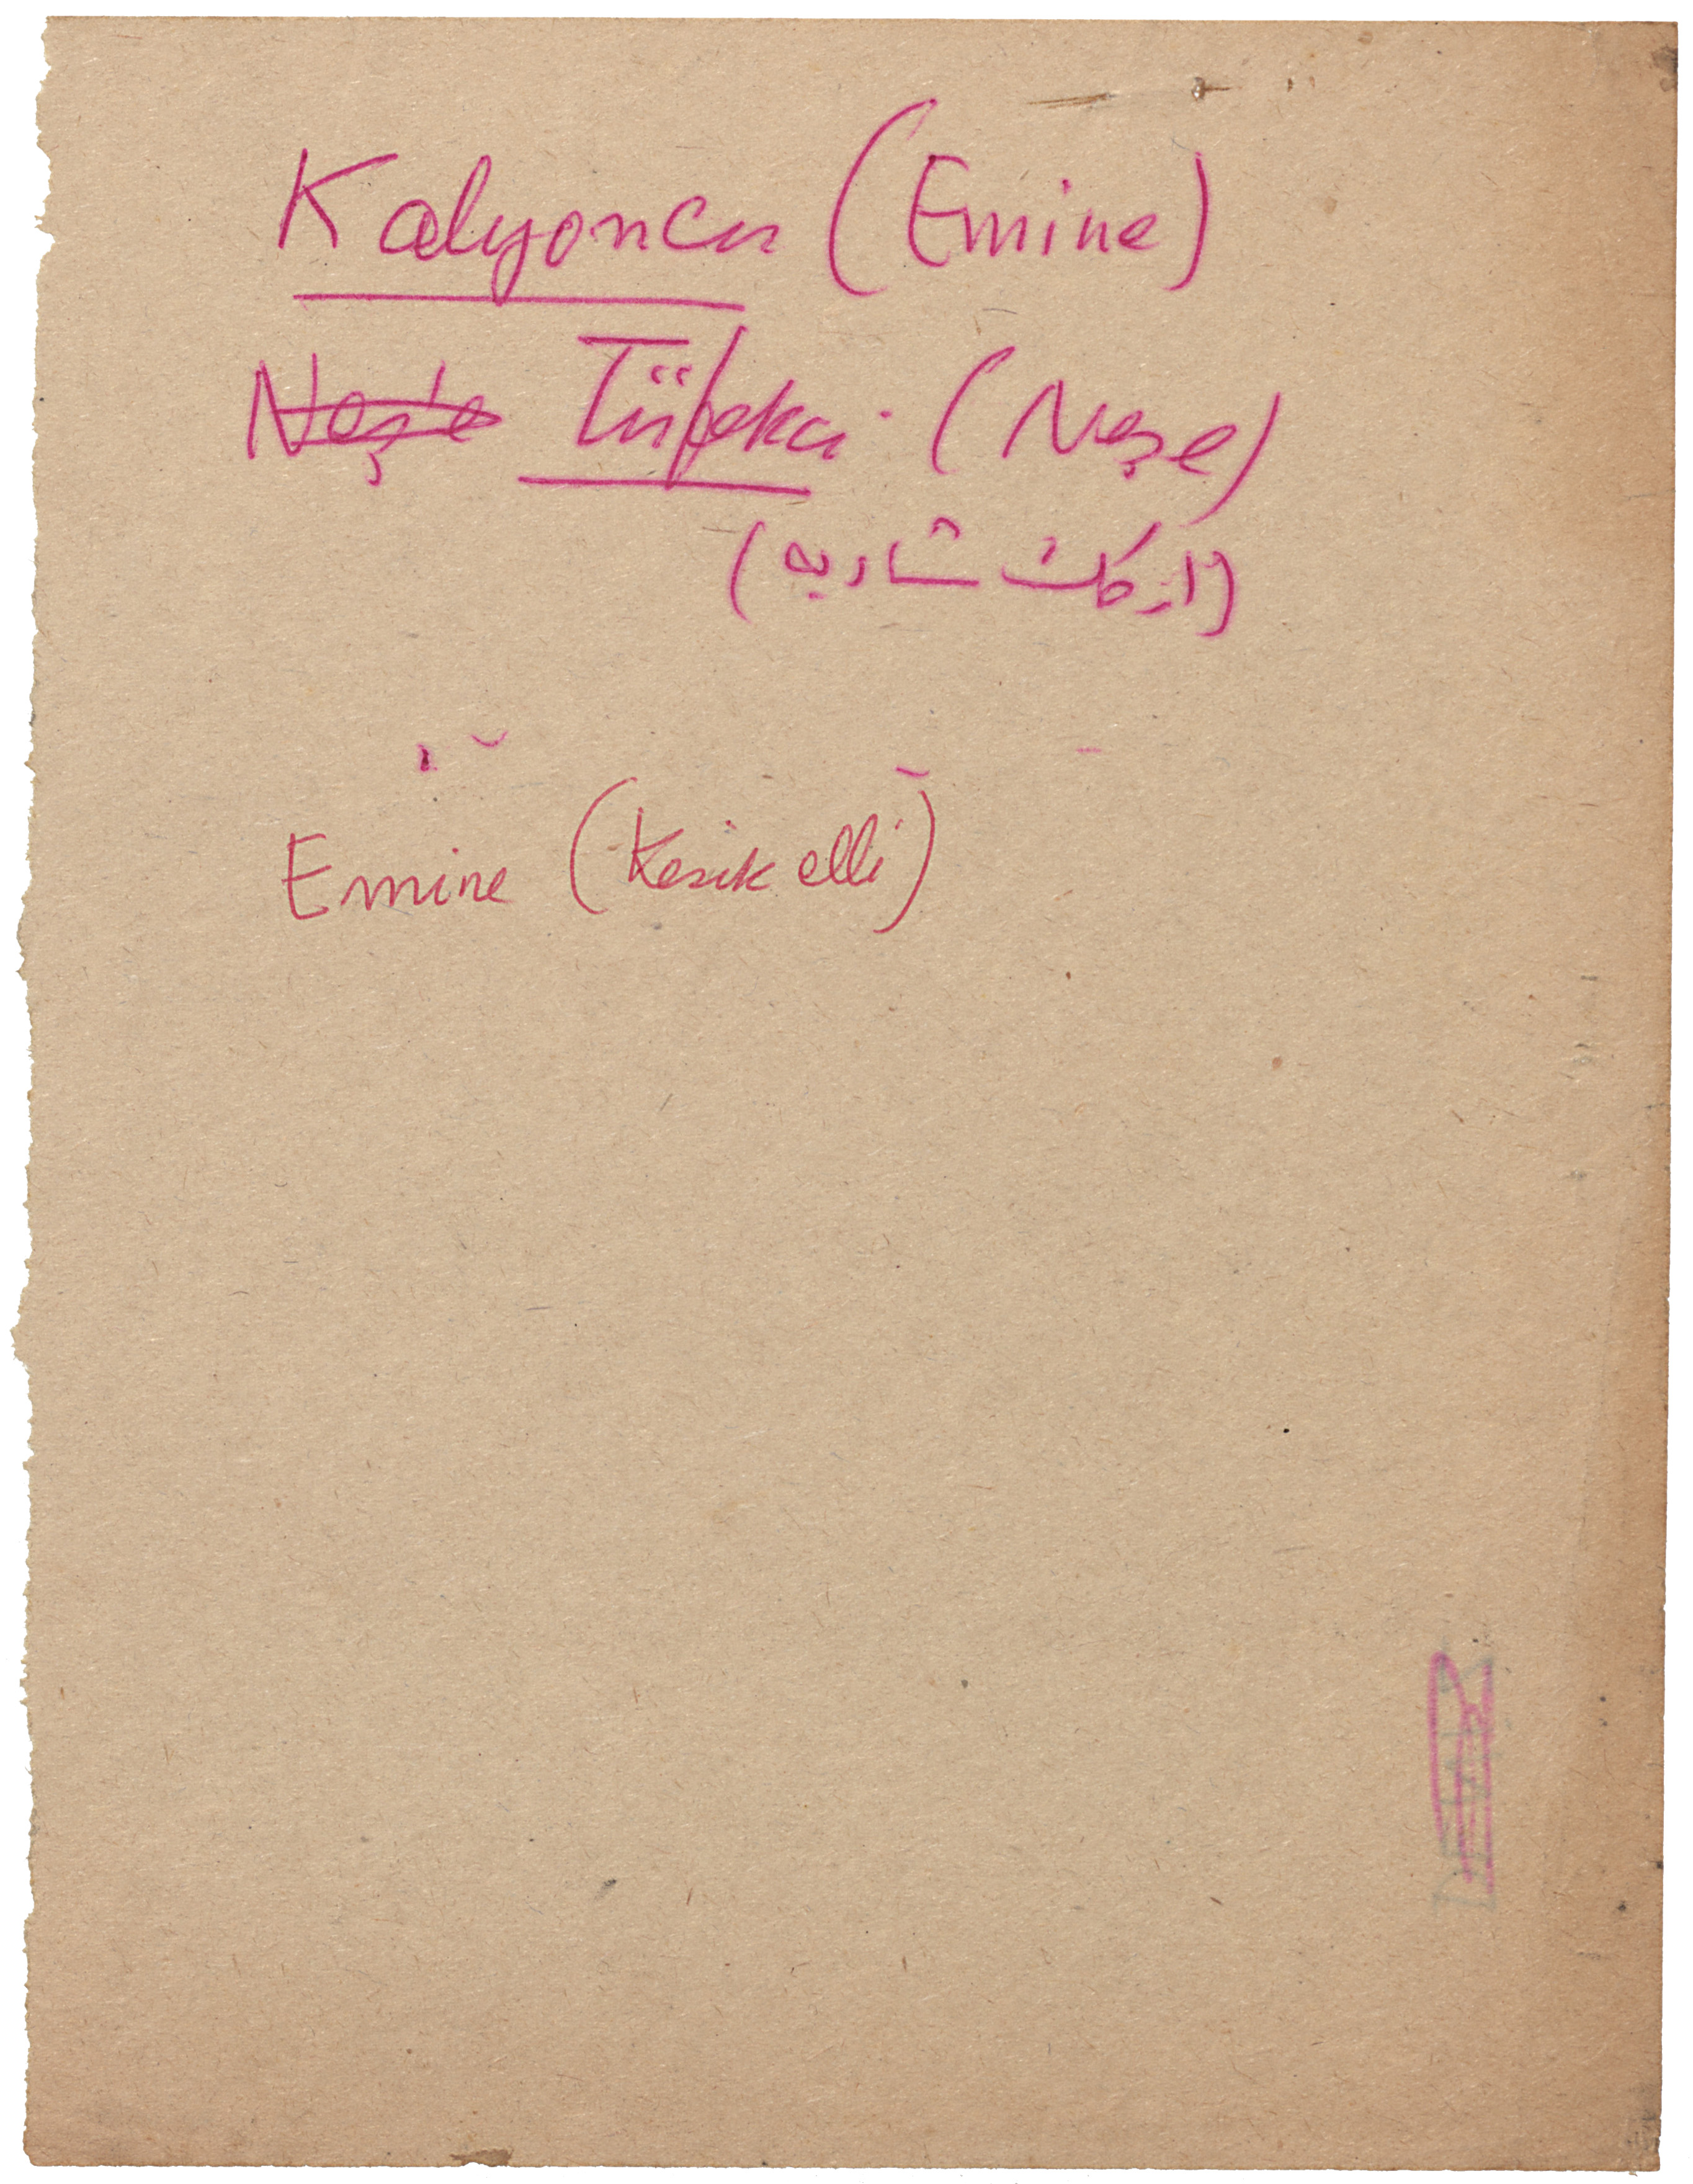 Kalyoncu (Emine)
Neşe Tüfekci (Neşe)
(ارکك شادیه)
Emine (Kesik elli)